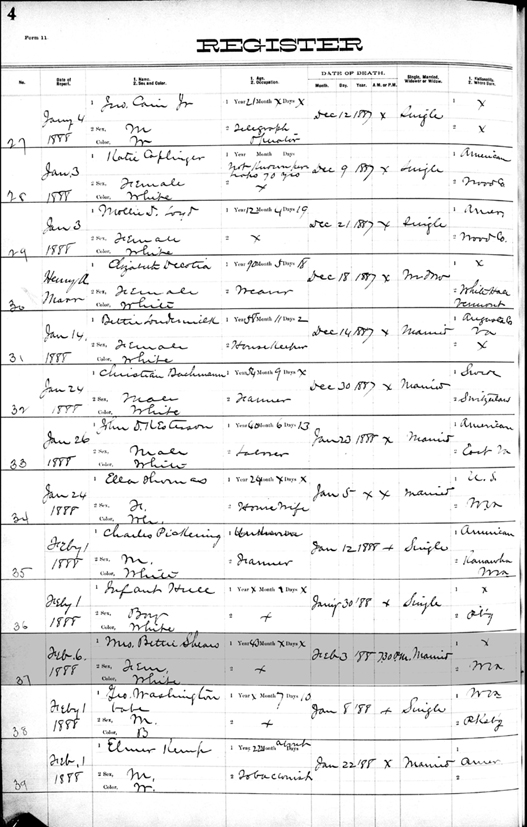 4
Form 11
REGISTER
No.
Date of Report.
1. Name.
2. Sex and Color.
1. Age.
2. Occupation.
DATE OF DEATH.
Month. Day. Year. A.M. or P.M.
Single, Married, Widower or Widow.
1. Nationality.
2. Where Born.
27 Jany 4 1888
1 Jno. Cain Jr
2 Sex, M
Color, W
1 Year 21 Month x Days x
2 Telegraph Operator
Dec 12 1887 x Single
1 x
2 x
28 Jan 3 1888
1 Katie Caplinger
2 Sex, Female
Color, White
1 Year Month Days
Not Known perhaps 70 yrs
2 x
Dec 9 1887 x Single
1 American
2 Wood Co
29 Jan 3 1888
1 Mollie D. Loyd
2 Sex, Female
Color, White
1 Year 12 Month 4 Days 19
2 x
Dec 21 1887 x Single
1 Amer
2 Wood Co.
30 Henry A Mason
1 Elizabeth
2 Sex, Female
Color, White
1 Year 90 Month 5 Days 18
2 Weaver
Dec 18 1887 x Widow
1 x
2 White Hall Vermont
31 Jan 14, 1888
1 Bettie Loudermilk
2 Sex, Female
Color, White
1 Year 58 Month 11 Days 2
2 House Keeper
Dec 14 1887 x Married
1 Augusta Co Va
2 x
32 Jan 24 1888
1 Christian Bachmann
2 Sex, Male
Color, White
1 Year 54 Month 9 Days x
2 Farmer
Dec 30 1887 x Married
1 Swiss
2 Switzerland
33 Jan 26 1888
1 John D.
2 Sex, Male
Color, White
1 Year 60 Month 6 Days 13
2 Laborer
Jan 23 1888 x Married
1 American
2 East Va
34 Jan 24 1888
1 Ella Thomas
2 Sex, F.
Color, Wh.
1 Year 24 Month x Days x
2 House Wife
Jan 5 x x Married
1 U.S.
2 WVa
35 Feby 1 1888
1 Charles Pickering
2 Sex, M.
Color, White
1 Unknown
2 Farmer
Jan 12 1888 + Single
1 American
2 Kanawha WVa
36 Feby 1 1888
1 Infant Hill
2 Sex, Boy
Color, White
1 Year x Month 1 Days x
2 +
Jany 30 '88 + Single
1 x
2
37 Feb. 6. 1888
1 Mrs. Bettie Shears
2 Sex, Fem,
Color, White
1 Year 43 Month x Days x
2 +
Feb 3 '88 7 30 P.M. Married
1 x
2 WVa
38 Feby 1 1888
1 Geo. Washington babe
2 Sex, M.
Color, B
1 Year x Month 7 Days 10
2 +
Jan 8 '88 + Single
1 WVa
2
39 Feb. 1 1888
1 Elmer Kemp
2 Sex, M,
Color, W.
1 Year 22 Month about Days
2 Tobacconist
Jan 22 '88 x Married
1 Amer
2